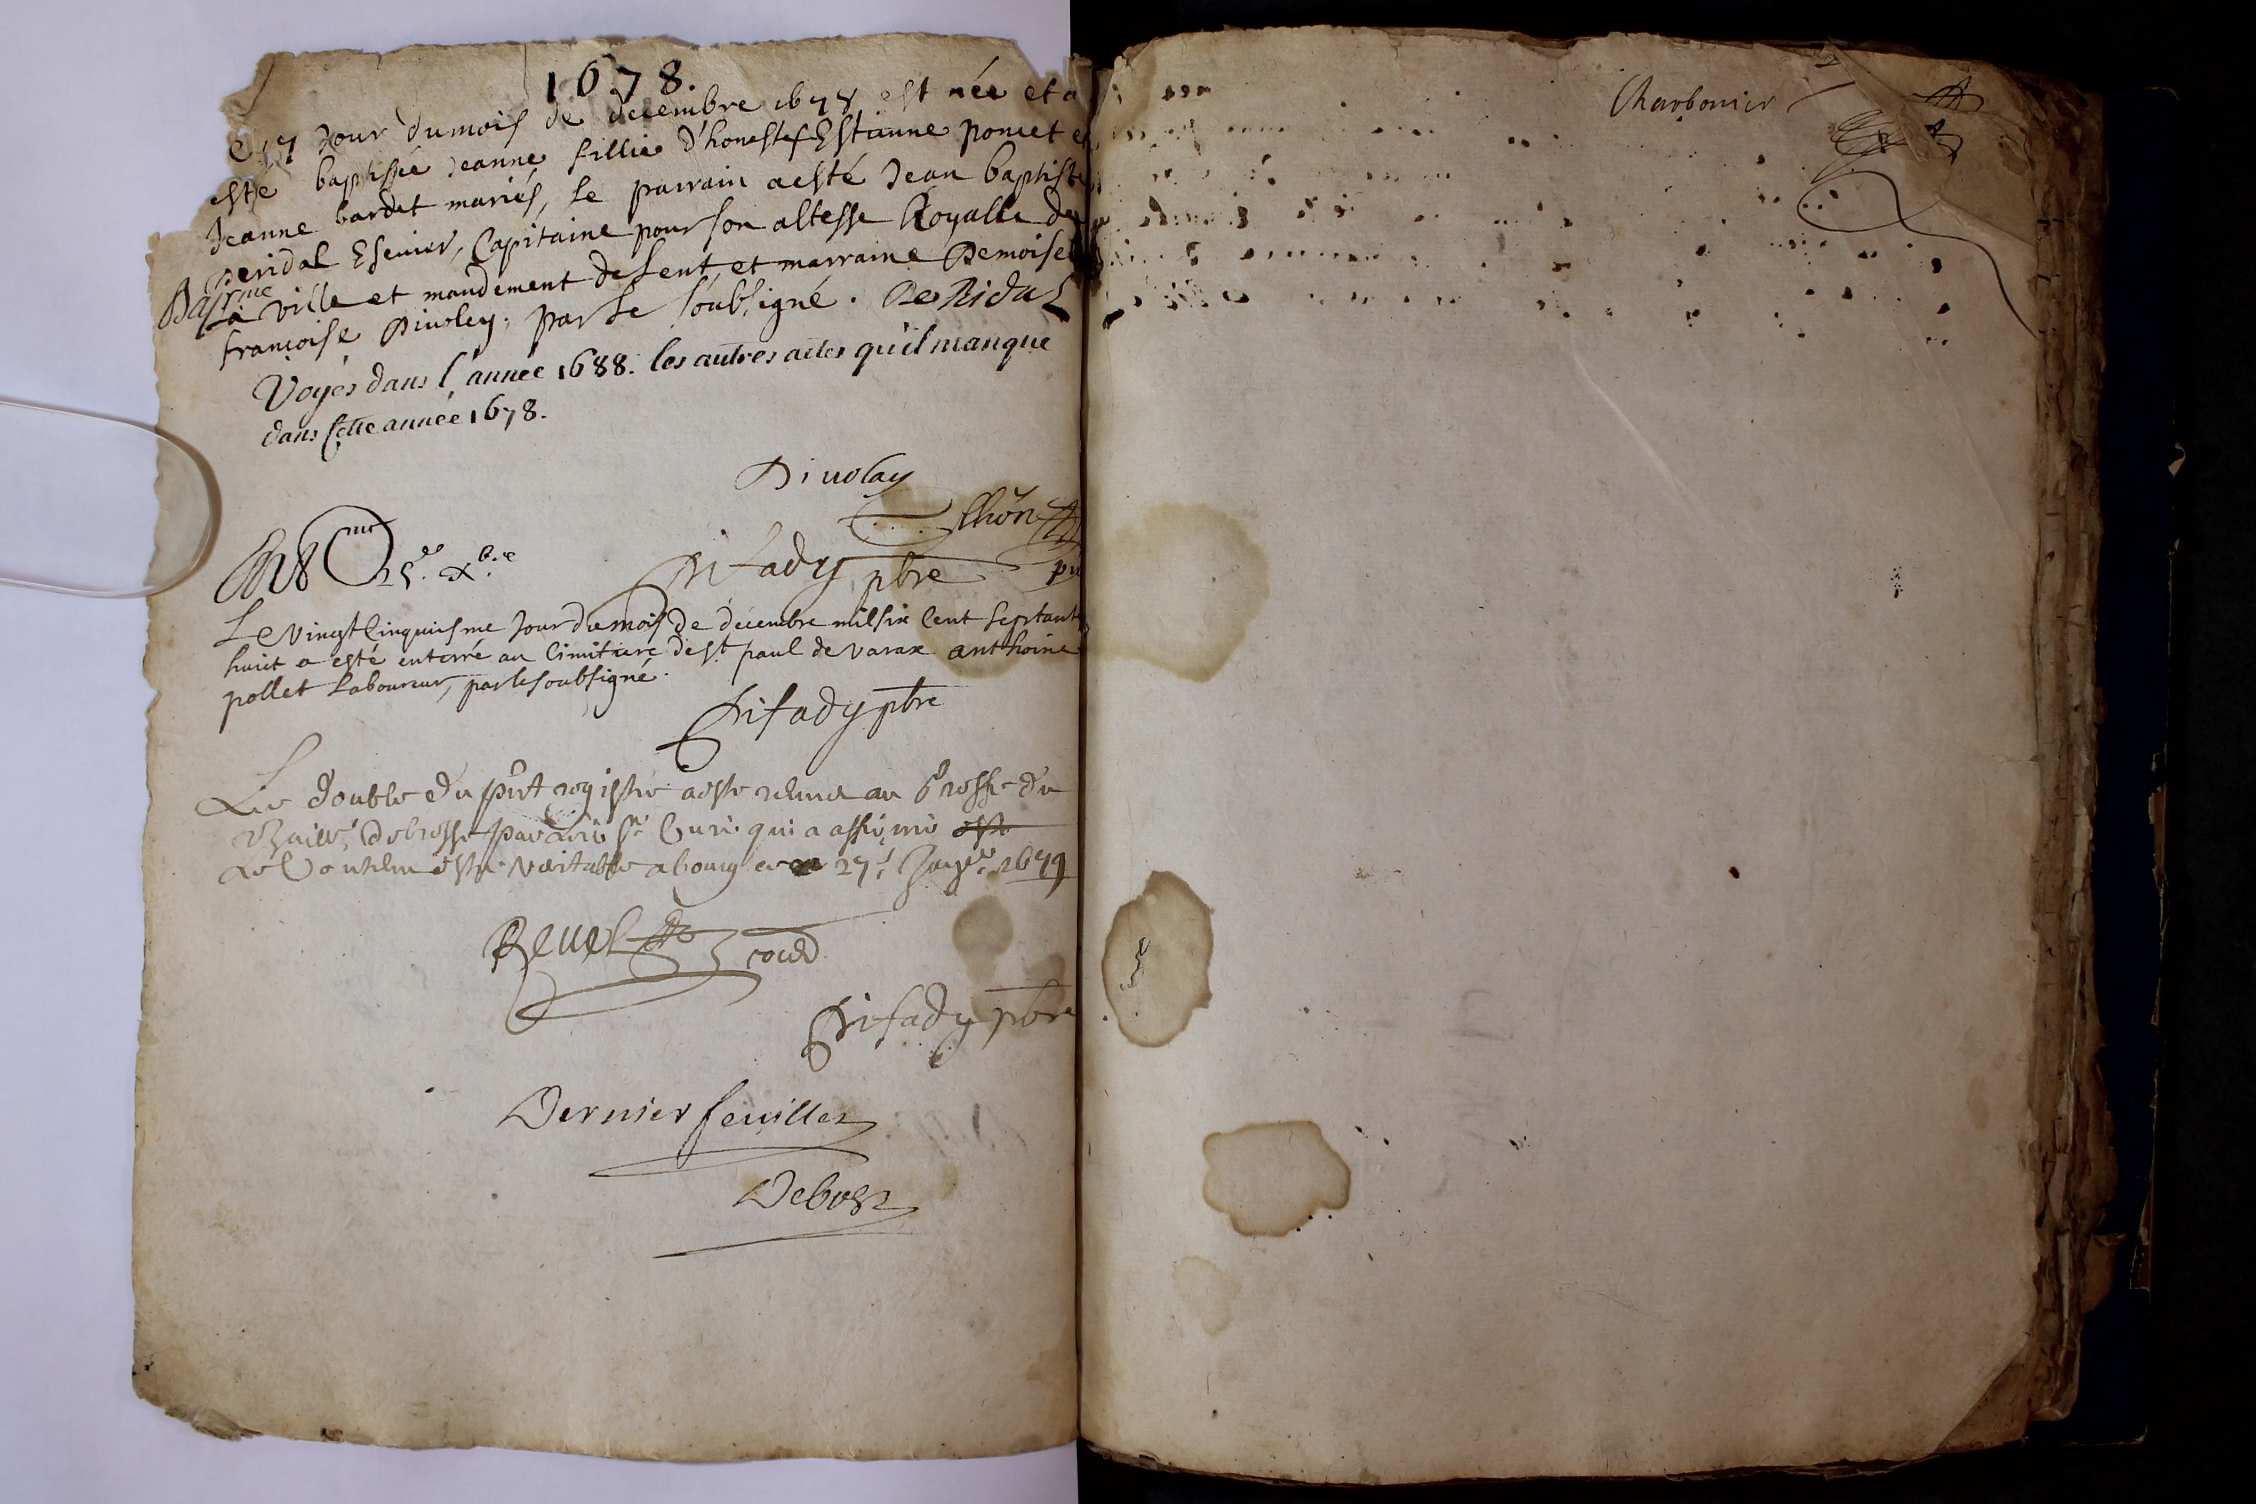 1678.
jour du mois de decembre 1678 est née et a
este baptisée Jeanne fillie d'honestes Estianne poncet et
Jeanne bardet mariés, le parrain a esté Jean baptiste
Deridal Escuier, Capitaine pour son altesse Royalle de
la ville et mandement de Lent, et marraine Demoiselle
françoise Diuoley, par le soubsigné. De Ridal
Voyés dans l'année 1688. les autres actes qu'il manque
dans cette année 1678.
Diuoley
pbre
25.e xbre
Le vingt cinquiesme jour du mois de décembre mil six cent septante
huict a esté enterré au cimitiere de st paul de varax anthoine
pollet Laboureur, par le soubsigné.
pbre
Le double du pnt registre a este remis au Greffe du
par Curé qui a affirmé
le contenu estre veritable a bourg ce 27e 1679
Reuel
pbre
Dernier feuillet
Debost
Charbonier